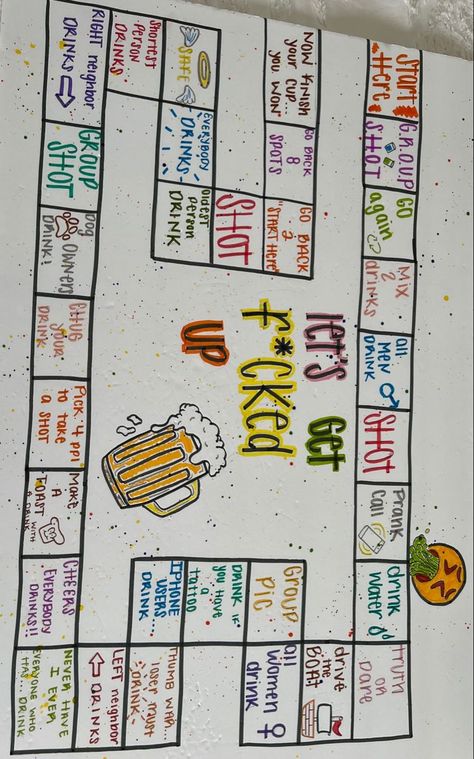 Start
Here
GROUP
SHOT
GO
again
MIX
2
drinks
all
MEN
DRINK
SHOT
Prank
Call
drink
water
truth
or
Dare
drive
the
BOAT
all
women
drink
Group
Pic
DRINK IF
you Have
a
tattoo
IPHONE
USERS
DRINK
THUMB WAR...
loser must
DRINK
LEFT neighbor
DRINKS
NEVER HAVE
I EVER
EVERYONE WHO
HAS... DRINK
CHEERS
EVERYBODY
DRINKS!!
Make
A
TOAST WITH
A DRINK
Pick 4 ppl
to take
a SHOT
CHUG
your
DRINK
Dog
OWNERS
DRINK!
GROUP
SHOT
RIGHT neighbor
DRINKS
Shortest
Person
DRINKS
SAFE
EVERYBODY
DRINKS
Oldest
Person
DRINK
SHOT
GO BACK
2
"START HERE"
GO BACK
8
SPOTS
NOW FINISH
your CUP...
you WON
LET'S GET
F*CKED
UP